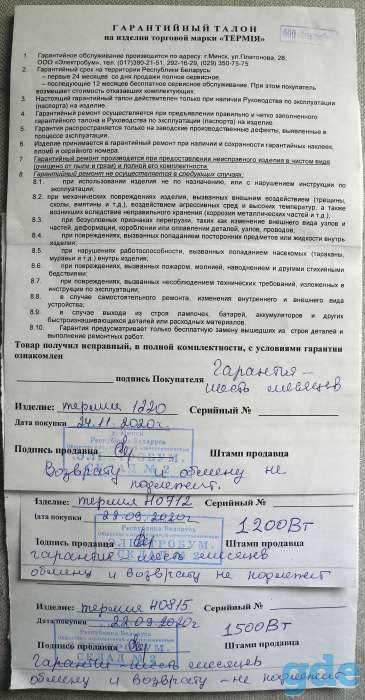 ГАРАНТИЙНЫЙ ТАЛОН
на изделия торговой марки «ТЕРМІЯ»
1. Гарантийное обслуживание производится по адресу: г.Минск, ул.Платонова, 28,
ООО «Электробум», тел. (017)380-21-51, 292-16-29, (029) 350-75-75
2. Гарантийный срок на территории Республики Беларусь:
– первые 24 месяцев со дня продажи полное сервисное.
– последующие 12 месяцев бесплатное сервисное обслуживание. При этом покупатель
возмещает стоимость отказавших комплектующих.
3. Настоящий гарантийный талон действителен только при наличии Руководства по эксплуатации
(паспорта) на изделие.
4. Гарантийный ремонт осуществляется при предъявлении правильно и четко заполненного
гарантийного талона и Руководства по эксплуатации (паспорта) на изделие.
5. Гарантия распространяется только на заводские производственные дефекты, выявленные в
процессе эксплуатации.
6. Изделие принимается в гарантийный ремонт при наличии и сохранности гарантийных наклеек,
пломб и серийного номера.
7. Гарантийный ремонт производится при предоставлении неисправного изделия в чистом виде
(очищено от пыли и грязи) и полной его комплектности.
8. Гарантийный ремонт не осуществляется в следующих случаях:
8.1. при использовании изделия не по назначению, или с нарушением инструкции по
эксплуатации;
8.2. при механических повреждениях изделия, вызванных внешним воздействием (трещины,
сколы, вмятины и т.д.), воздействием агрессивных сред и высоких температур, а также
возникших вследствие неправильного хранения (коррозия металлических частей и т.д.).
8.3. при безусловных признаках перегрузки, таких как изменение внешнего вида узлов и
частей, деформация, коробление или оплавление деталей, узлов, проводов;
8.4. при повреждениях, вызванных попаданием посторонних предметов или жидкости внутрь
изделия;
8.5. при нарушениях работоспособности, вызванных попаданием насекомых (тараканы,
муравьи и т.д.) внутрь изделия;
8.6. при повреждениях, вызванных пожаром, молнией, наводнением и другими стихийными
бедствиями;
8.7. при повреждениях, вызванных несоблюдением технических требований, изложенных в
инструкции по эксплуатации;
8.8. в случае самостоятельного ремонта, изменения внутреннего и внешнего вида
устройства;
8.9. в случае выхода из строя лампочек, батарей, аккумуляторов и других
быстроизнашивающихся деталей или расходных материалов.
8.10. Гарантия предусматривает только бесплатную замену вышедших из строя деталей и
выполнение ремонтных работ.
Товар получил исправный, в полной комплектности, с условиями гарантии
ознакомлен
Гарантия –
подпись Покупателя
шесть месяцев
Изделие: термия 1220 Серийный №
Дата покупки 24.11.2020г
Республика Беларусь
Подпись продавца Штамп продавца
Возврату и обмену не
подлежит.
Изделие: термия H0912 Серийный №
Дата покупки 22.09.2020г
1200Вт
Республика Беларусь
ЭЛЕКТРОБУМ
Подпись продавца Штамп продавца
гарантия – шесть месяцев
обмену и возврату не подлежит
Изделие: термия H0815 Серийный №
Дата покупки 22.09.2020г
1500Вт
Республика Беларусь
Подпись продавца Штамп продавца
СКЛАД № 2
Гарантия – шесть месяцев
обмену и возврату – не подлежит
gde